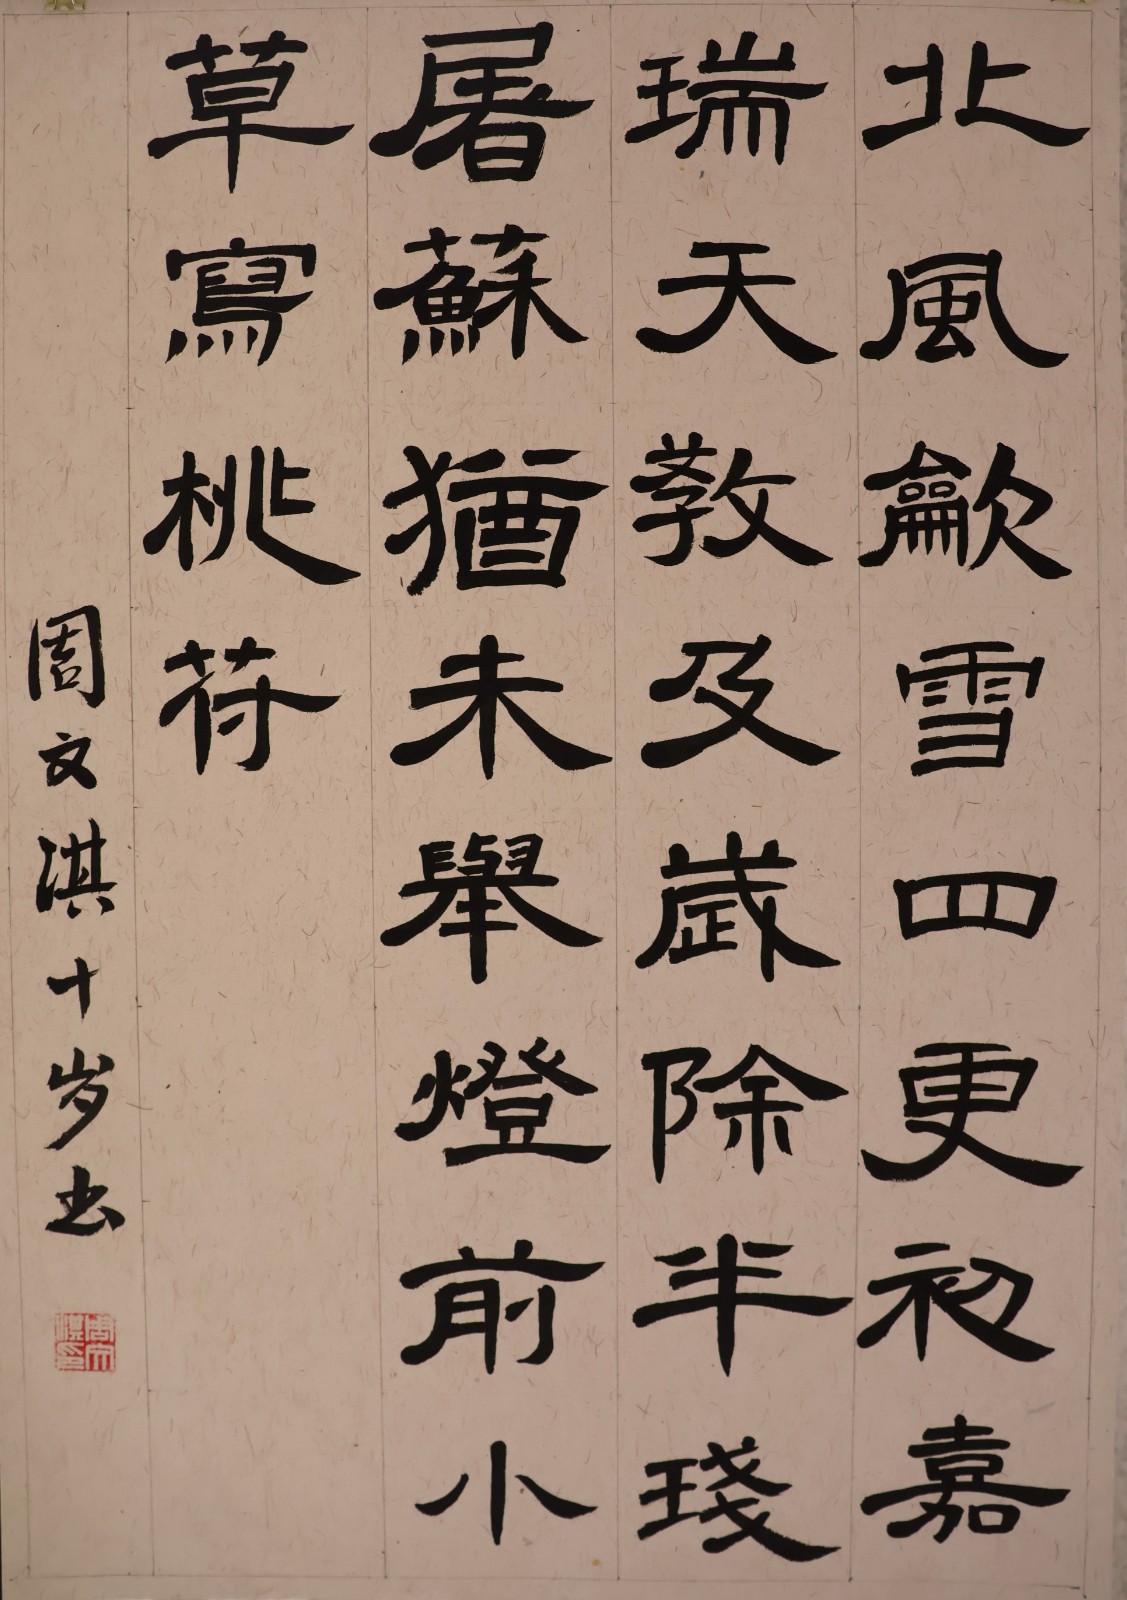 北風歙雪四更初嘉
瑞天教及歲除半琖
屠蘇猶未舉燈前小
草寫桃苻
周文淇十岁书
周文淇印